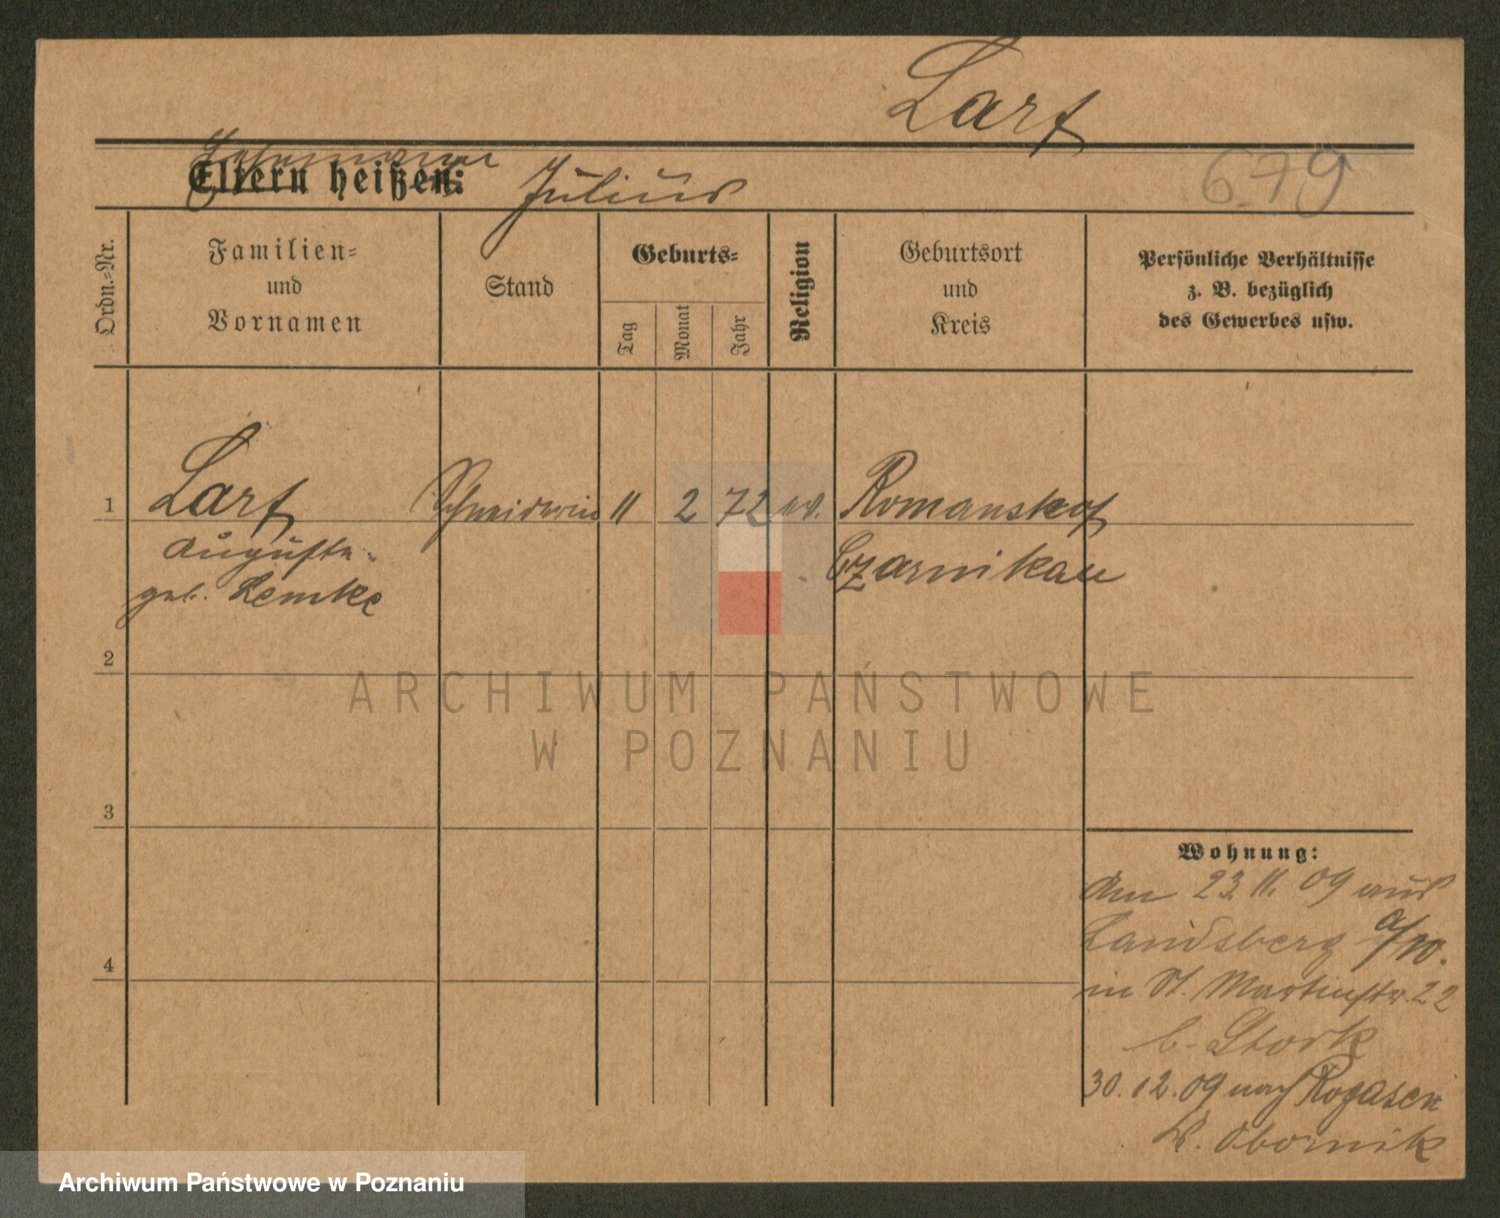 Larf
Eltern heißen: Julius
679
Ordn.-Nr.
Familien-
und
Vornamen
Stand
Geburts-
Tag
Monat
Jahr
Religion
Geburtsort
und
Kreis
Persönliche Verhältnisse
z. B. bezüglich
des Gewerbes usw.
1 Larf Schneiderin 11 2 72 ev. Romanshof
Auguste
geb. Lemke
Czarnikau
2
3
4
ARCHIWUM PAŃSTWOWE
W POZNANIU
Wohnung:
den 23. 11. 09 aus
Landsberg a/W.
in St. Martinstr. 22
b. Stork
30. 12. 09 nach Rogasen
Kr. Obornik
Archiwum Państwowe w Poznaniu